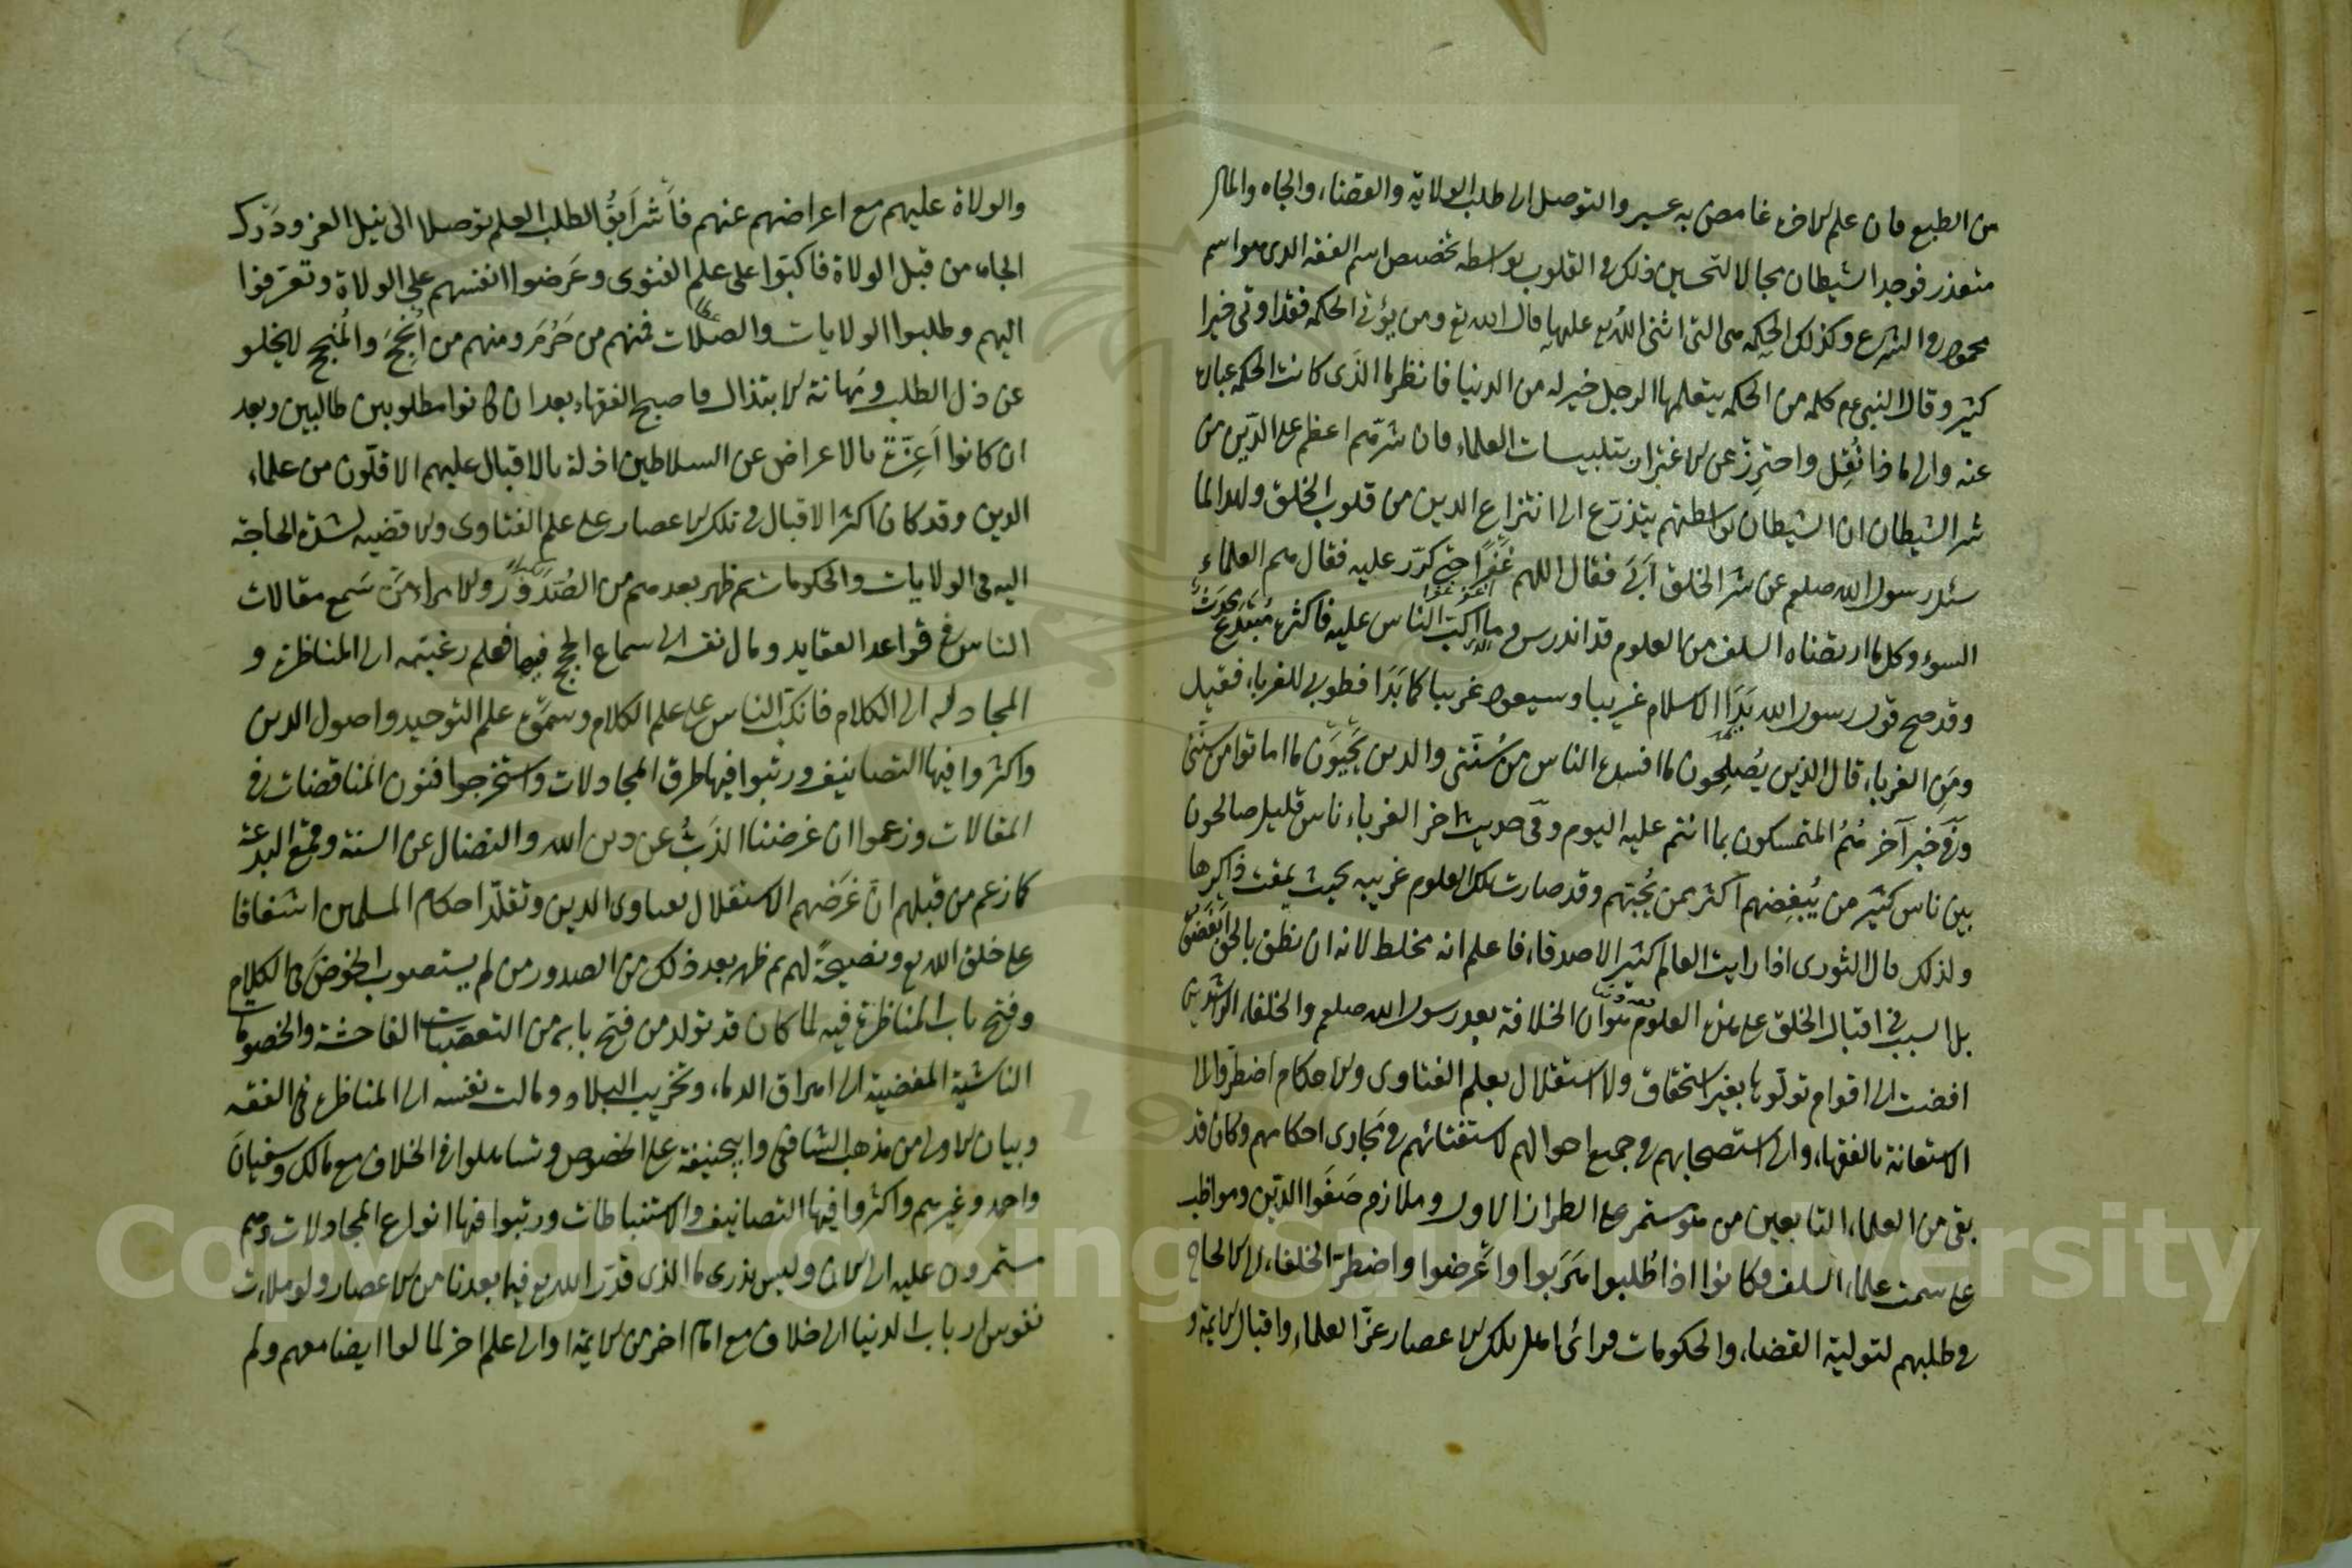 من الطبع فان علم الاخرة غامض به عسير والتوصل الى طلب الولاية والقضاء والجاه والمال
متعذر فوجد الشيطان مجالا لتحسين ذلك فى القلوب بواسطة تخصيص اسم الفقه الذى هو اسم
محمود فى الشرع وكذلك الحكمة هى التى اثنى الله تع عليها قال الله تع ومن يؤتى الحكمة فقد اوتى خيرا
كثير وقال النبى عم كلمة من الحكمة يتعلمها الرجل خير له من الدنيا فانظر ما الذى كانت الحكمة عبارة
عنه والى ماذا نُقِل واحترِز عن الاغترار بتلبيسات العلماء فان شرّهم اعظم على الدّين من
شر الشيطان ان الشيطان بواسطتهم يتذرّع الى انتزاع الدين من قلوب الخلق ولهذا لما
سئل رسول الله صلعم عن شر الخلق اَبَى فقال اللهم غَفرًا حتى كرّر عليه فقال هم العلماء
السوء وكل ما ارتضاه السلف من العلوم قد اندرس وما اكبّ الناس عليه فاكثره مُبْتَدِع مُحدَث
وقد صح قول رسول الله بَدَا الاسلام غريبا وسيعود غريبا كما بَدَا فطوبى للغرباء فقيل
ومَنِ الغرباء قال الذين يُصلِحون ما افسده الناس من سُنّتى والذين يُحيُون ما اماتوا من سنتى
وفى خبر آخر هُمُ المتمسكون بما انتم عليه اليوم وفى حديث اخر الغرباء ناس قليل صالحون
بين ناس كثير من يُبغِضهم اكثر ممن يُحِبّهم وقد صارت تلك العلوم غريبة بحيث يمقت ذاكرها
ولذلك قال الثورى اذا رايت العالم كثير الاصدقاء فاعلم انه مخلط لانه ان نطق بالحق ابغضوه
بل السبب فى اقبال الخلق على هذه العلوم هو ان الخلافة بعد رسول الله صلعم والخلفاء الراشدين
افضت الى اقوام تولّوها بغير استحقاق ولا استقلال بعلم الفتاوى والاحكام اضطروا الى
الاستعانة بالفقهاء والى استصحابهم فى جميع احوالهم لاستفتائهم فى مَجَارى احكامهم وكان قد
بقى من العلماء التابعين من هو مستمر على الطراز الاول وملازم صَفوَ الدّين ومواظب
على سمت علماء السلف وكانوا اذا طُلبوا هَرَبوا واَعرَضوا واضطرّ الخلفاء الى الالحاح
فى طلبهم لتولية القضاء والحكومات فرائ اهل تلك الاعصار عزّ العلماء واقبال الايمة و
والولاة عليهم مع اعراضهم عنهم فاَشرَاَبُّوا لطلب العلم توصلا الى نيل العز ودَرْك
الجاه من قبل الولاة فاكبّوا على علم الفتوى وعَرَضوا انفسهم على الولاة وتعرّفوا
اليهم وطلبوا الولايات والصّلات فمنهم من حُرُمَ ومنهم من اَنجَحَ والمُنجح لايخلو
عن ذل الطلب ومهانة الابتذال فاصبح الفقهاء بعد ان كانوا مطلوبين طالبين وبعد
ان كانوا اَعِزّة بالاعراض عن السلاطين اذلة بالاقبال عليهم الا قلّون من علماء
الدين وقد كان اكثر الاقبال فى تلك الاعصار على علم الفتاوى والاقضية لشدة الحاجة
اليه فى الولايات والحكومات ثم ظهر بعدهم من الصُدُور والامراء مَنْ سَمع مقالات
الناس فى قواعد العقايد ومال نفسه الى سماع الحجج فيها فعلم رغبته الى المناظرة و
المجادلة الى الكلام فانكبّ الناس على علم الكلام وسمّوه علم التوحيد واصول الدين
واكثروا فيها التصانيف ورتبوا فيها طرق المجادلات واستخرجوا فنون المناقضات فى
المقالات وزعموا ان غرضنا الذَبُّ عن دين الله والنضال عن السنة وقمع البدعة
كما زعم من قبلهم انّ غَرَضهم الاستقلال بفتاوى الدين وتقلّد احكام المسلمين اشفاقا
على خلق الله تع ونصيحةً لهم ثم ظهر بعد ذلك من الصدور من لم يستصوب الخوضَ فى الكلام
وفتح باب المناظرة فيه لما كان قد تولد من فتح بابه من التعصبات الفاحشة والخصومات
الناشية المفضية الى اهراق الدماء وتخريب البلاد ومالت نفسه الى المناظرة فى الفقه
وبيان الاولى من مذهب الشافعى وابيحنيفة على الخصوص وتساهلوا فى الخلاف مع مالك وسفيان
واحمد وغيرهم واكثروا فيها التصانيف والاستنباطات ورتبوا فيها انواع المجادلات وهم
مستمرون عليه الى الان وليس ندرى ما الذى قدّر الله تع فيما بعدنا من الاعصار ولو مالت
نفوس ارباب الدنيا الى خلاف مع امام اخر من الايمة او الى علم اخر لمالوا ايضا معهم ولم